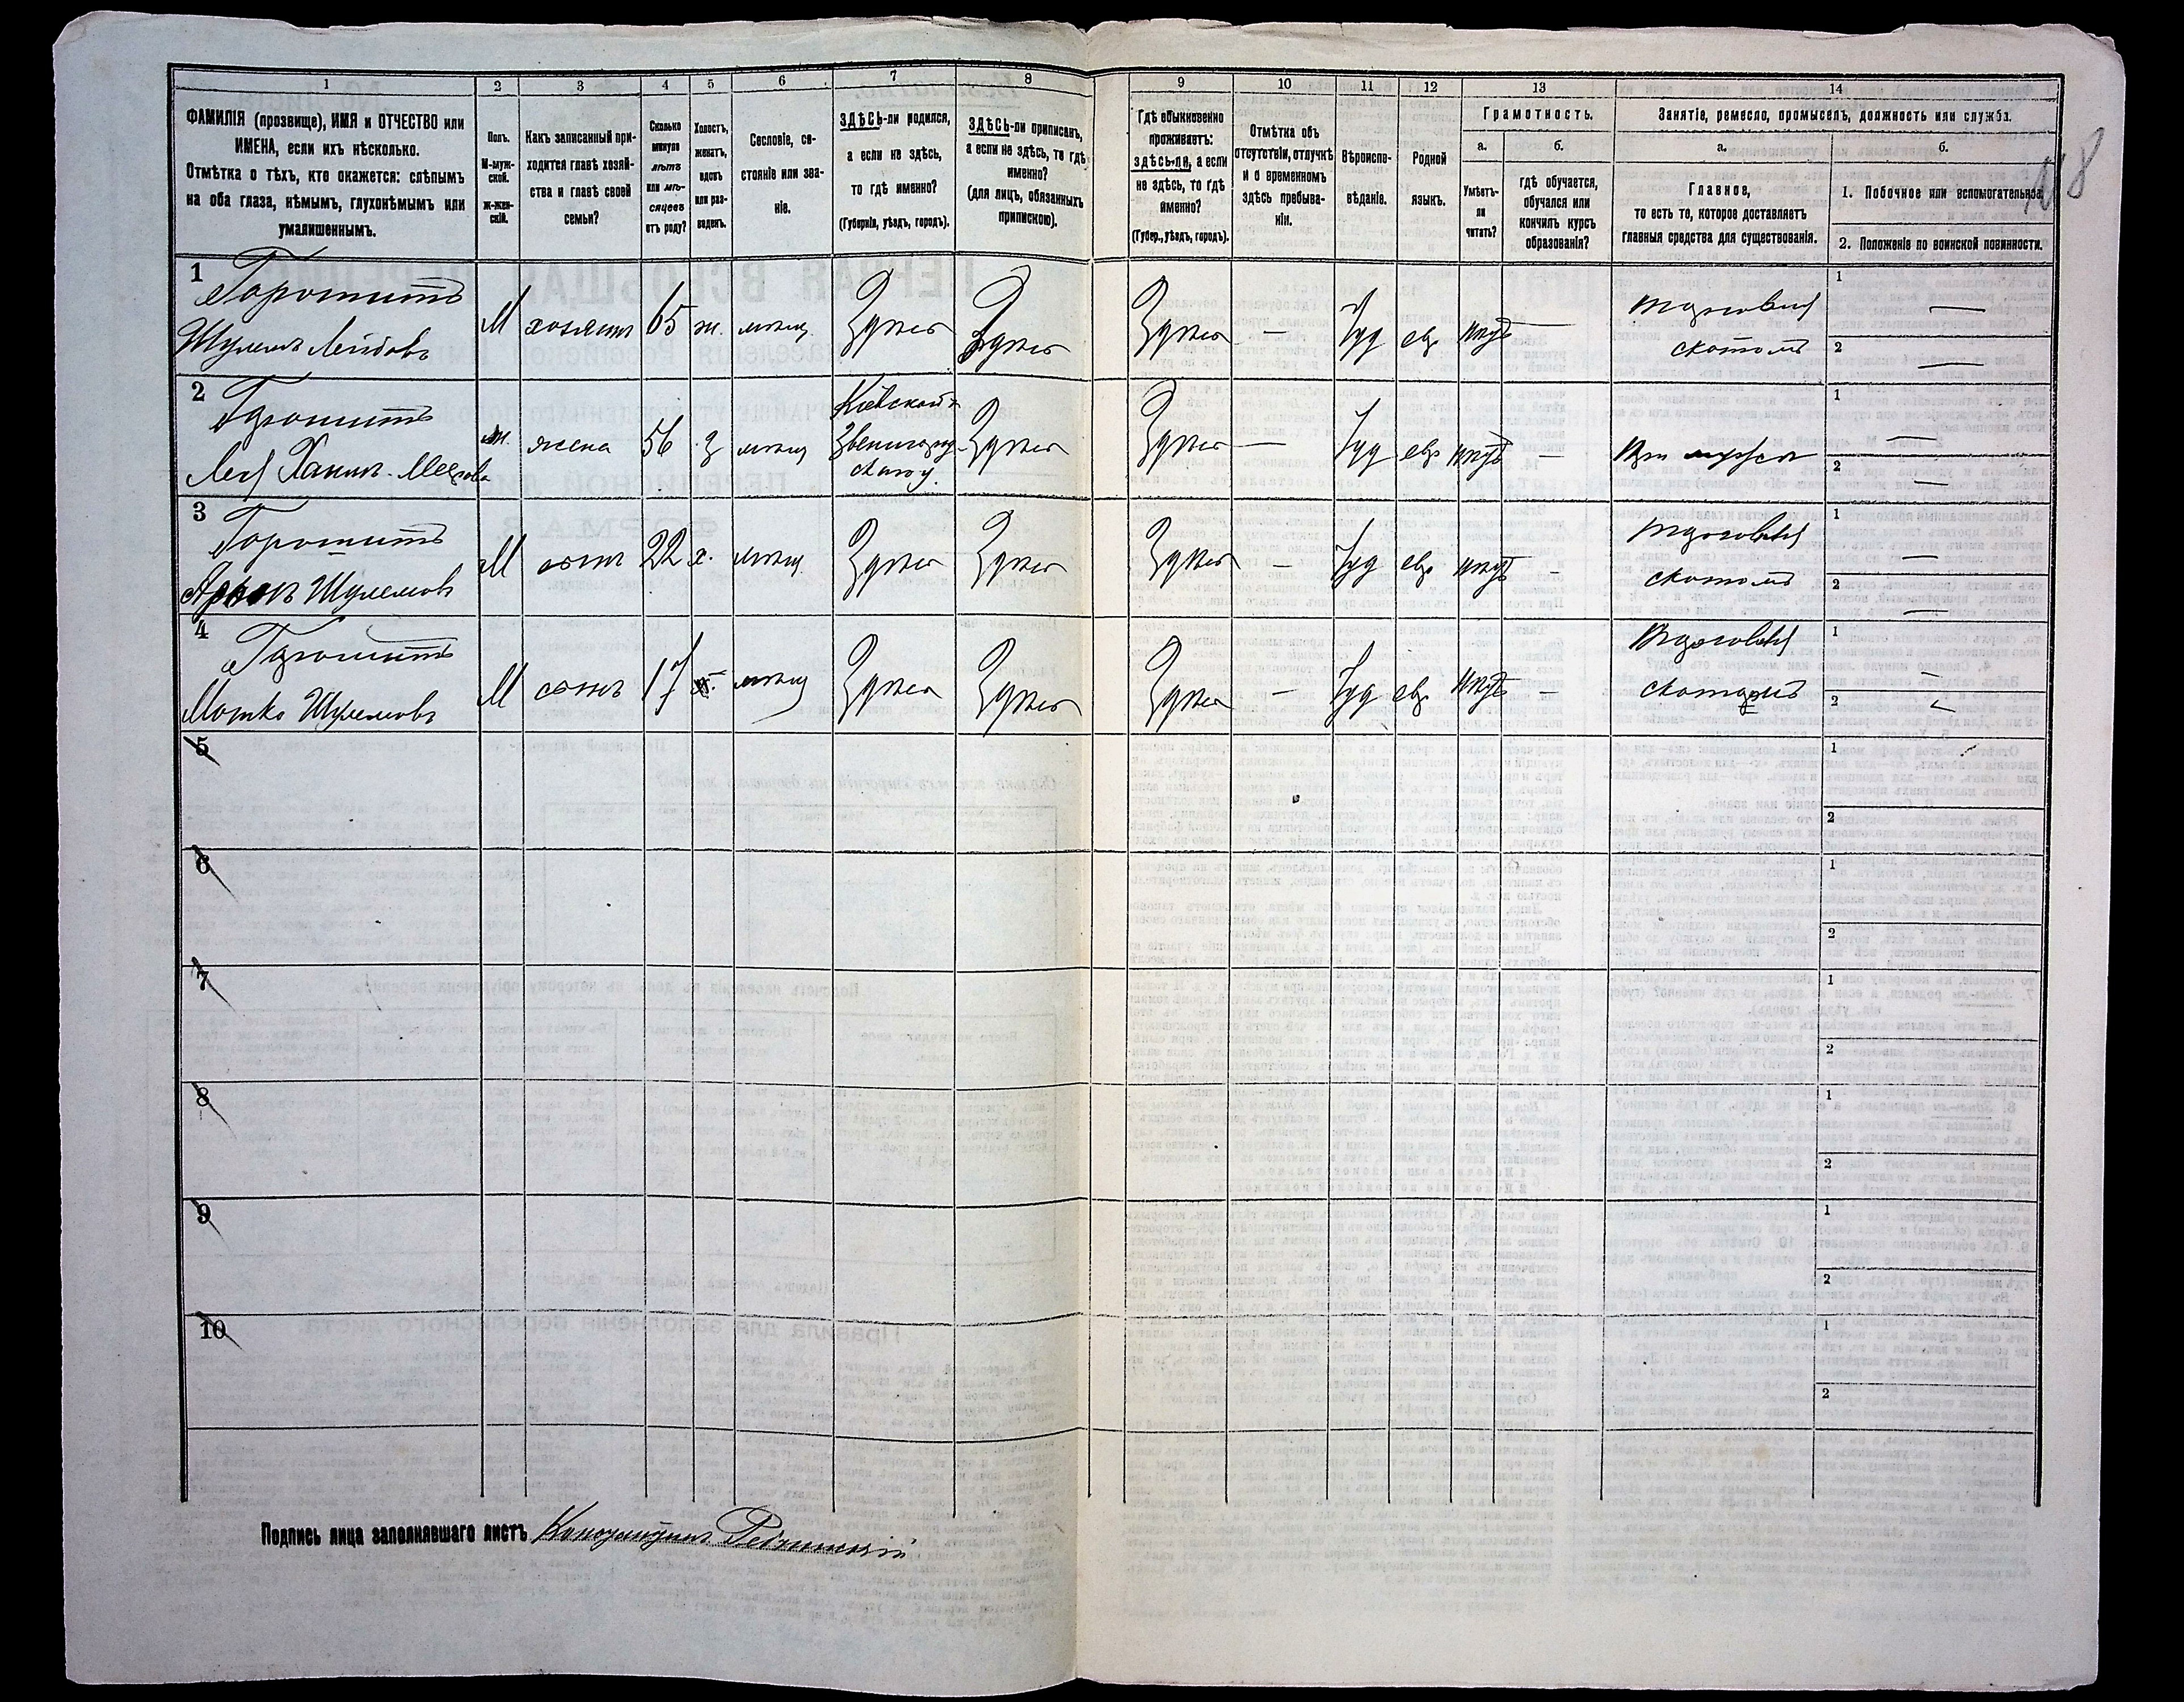 1 2 3 4 5 6 7 8 9 10 11 12 13 14
ФАМИЛІЯ (прозвище), ИМЯ и ОТЧЕСТВО или
ИМЕНА, если ихъ нѣсколько.
Отмѣтка о тѣхъ, кто окажется: слѣпымъ
на оба глаза, нѣмымъ, глухонѣмымъ или
умалишеннымъ.
Полъ.
М-муж-
ской.
ж-жен-
скій.
Какъ записанный при-
ходится главѣ хозяй-
ства и главѣ своей
семьи?
Сколько
минуло
лѣтъ
или мѣ-
сяцевъ
отъ роду?
Холостъ,
женатъ,
вдовъ
или раз-
веденъ.
Сословіе, со-
стояніе или зва-
ніе.
ЗДѢСЬ-ли родился,
а если не здѣсь,
то гдѣ именно?
(Губернія, уѣздъ, городъ).
ЗДѢСЬ-ли приписанъ,
а если не здѣсь, то гдѣ
именно?
(для лицъ, обязанныхъ
припискою).
Гдѣ обыкновенно
проживаетъ:
здѣсь-ли, а если
не здѣсь, то гдѣ
именно?
(Губер., уѣздъ, городъ).
Отмѣтка объ
отсутствіи, отлучкѣ
и о временномъ
здѣсь пребыва-
ніи.
Вѣроиспо-
вѣданіе.
Родной
языкъ.
Грамотность.
а.
Умѣетъ-
ли
читать?
б.
гдѣ обучается,
обучался или
кончилъ курсъ
образованія?
Занятіе, ремесло, промыселъ, должность или служба.
а.
Главное,
то есть то, которое доставляетъ
главныя средства для существованія.
б.
1. Побочное или вспомогательное.
2. Положеніе по воинской повинности.
118
1
Шулемъ Лейбовъ
М хозяинъ 65 ж. мѣщ. Здѣсь Здѣсь Здѣсь — Іуд евр нѣтъ —
торговля
скотомъ
1 —
2 —
2
Ханинъ
ж. жена 56 з мѣщ
Кіевской г.
Звенигород-
скаго у.
Здѣсь Здѣсь — Іуд евр нѣтъ —
При мужѣ
1 —
2 —
3
Шулемовъ
М сынъ 22 х. мѣщ. Здѣсь Здѣсь Здѣсь — Іуд евр нѣтъ —
торговля
скотомъ
1 —
2 —
4
Мошко Шулемовъ
М сынъ 17 х. мѣщ Здѣсь Здѣсь Здѣсь — Іуд евр нѣтъ —
торговля
скотомъ
1 —
2 —
5 1
2
6 1
2
7 1
2
8 1
2
9 1
2
10 1
2
Подпись лица заполнявшаго листъ